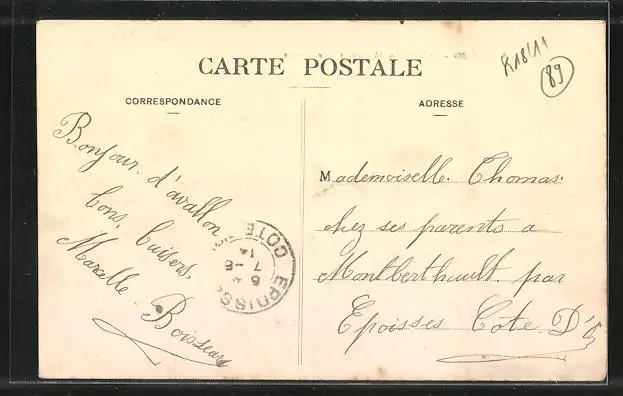 CARTE POSTALE
K18/11
89
CORRESPONDANCE
ADRESSE
Bonjour d'avallon
bons, baisers,
Marcelle Boisseau
Mademoiselle. Thomas.
chez ses parents a
Montberthault. par
Epoisses Cote D'Or
EPOISSES
COTE